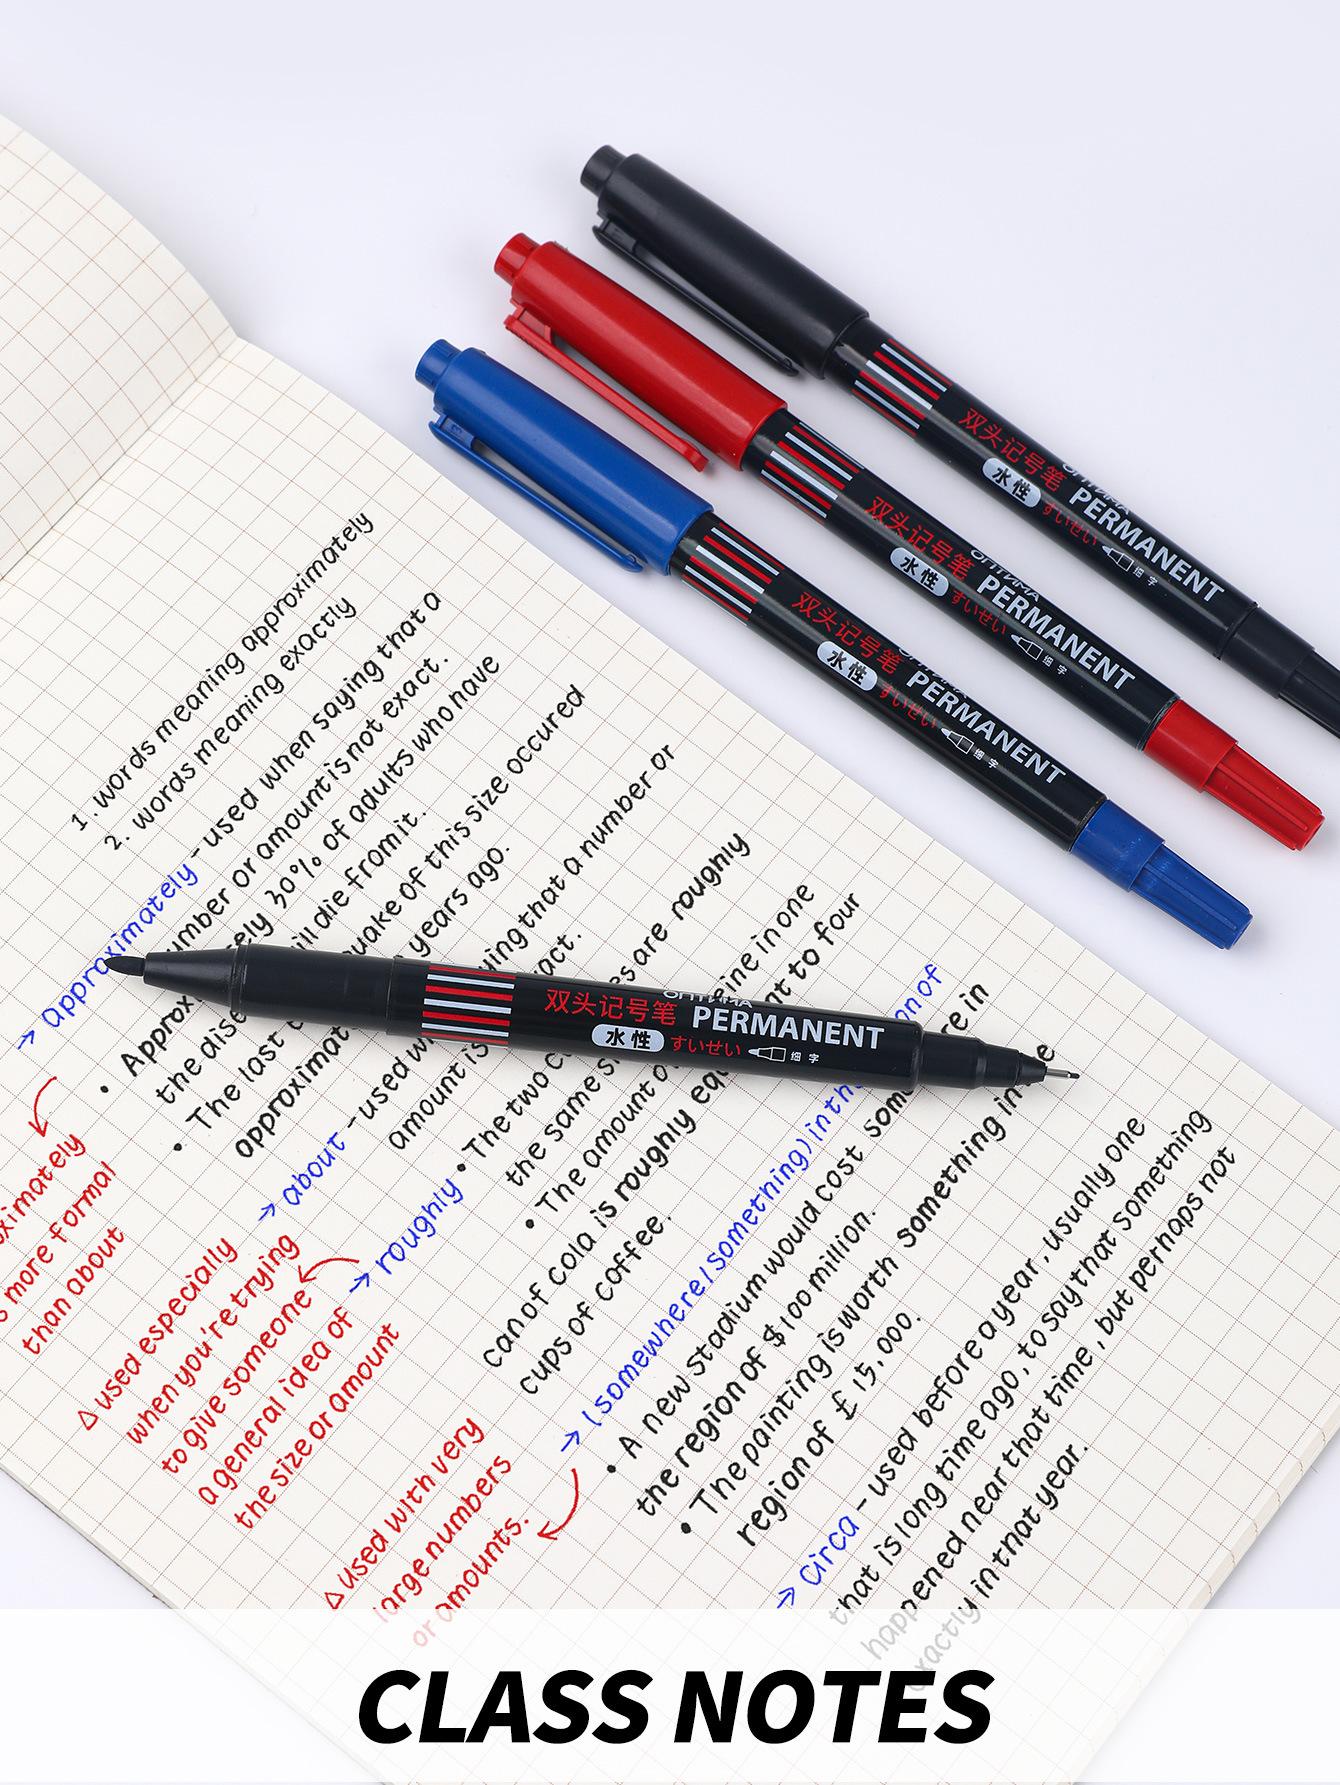 双头记号笔
水性
PERMANENT
すいせい
细字
双头记号笔
ОПТИМА
水性
PERMANENT
すいせい
细字
双头记号笔
水性
PERMANENT
すいせい
细字
1. words meaning approximately
2. words meaning exactly
→ approximately - used when saying that a
umber or amount is not exact.
• Approx ely 30% of adults who have
the dise ill die from it.
• The last e quake of this size occured
approximat years ago.
→ about - used w ying that a number or
amount is act.
→ roughly • The two c es are roughly
the same s eine in one
• The amount o at to four
can of cola is roughly equ
cups of coffee.
→ (somewhere/something) in th on of
• A new stadium would cost som re in
the region of $100 million.
• The painting is worth something in e
region of £15,000.
→ Circa - used before a year, usually one
that is long time ago, to say that something
happened near that time, but perhaps not
exactly in that year.
oximately
s more formal
than about
△ used especially
when you're trying
to give someone
a general idea of
the size or amount
△ used with very
large numbers
or amounts.
双头记号笔
ОПТИМА
水性
PERMANENT
すいせい
细字
CLASS NOTES